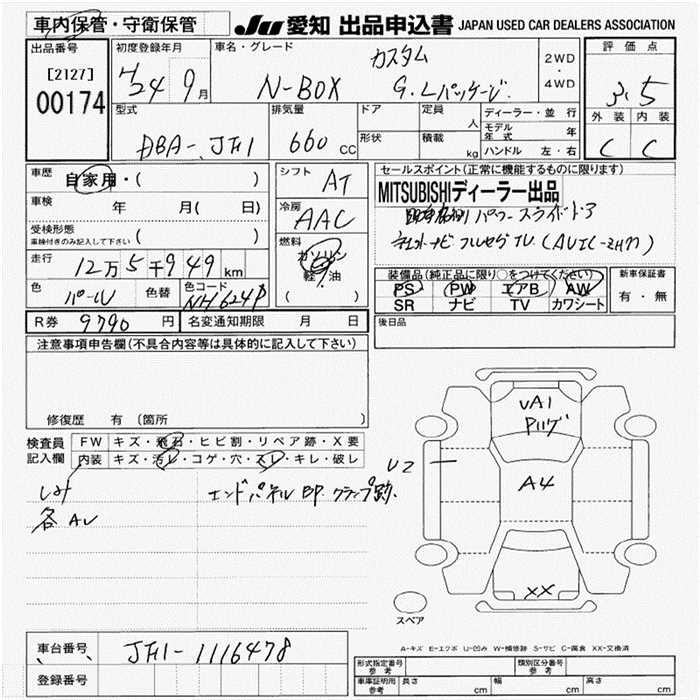 車内保管・守衛保管
JU 愛知 出品申込書 JAPAN USED CAR DEALERS ASSOCIATION
出品番号
[2127]
00174
初度登録年月
24 9月
車名・グレード
N-BOX
カスタム
G.Lパッケージ
2WD
・
4WD
評価点
3.5
外装 内装
C C
型式
DBA-JF1
排気量
660 cc
ドア
形状
定員
人
積載
kg
ディーラー・並行
モデル年式 年
ハンドル 左・右
車歴
自家用・( )
車検 年 月( 日)
受検形態
車検付きのみ記入して下さい ( )
走行
12万5千949km
色
パール
色替
色コード
NH624P
シフト
AT
冷房
AAC
燃料
ガソリン
軽油
( )
セールスポイント(正常に機能するものに限ります)
MITSUBISHIディーラー出品
両側 パワースライドドア
ナビ フルセグTV (AVIC-ZH77)
装備品(純正品に限り○をつけてください)
PS PW エアB AW
SR ナビ TV カワシート
新車保証書
有・無
R券 9790円
名変通知期限 月 日
後日品
注意事項申告欄(不具合内容等は具体的に記入して下さい)
修復歴 有 〔箇所 〕
検査員記入欄
FW キズ・飛石・ヒビ割・リペア跡・X要
内装 キズ・汚レ・コゲ・穴・スレ・キレ・破レ
シミ
各AU
エンドパネルBP クランプ跡.
UA1
Pハゲ
U2
A4
XX
スペア
A-キズ E-エクボ U-凹み W-補修跡 S-サビ C-腐食 XX-交換済
車台番号 JF1-1116478
登録番号
形式指定番号 参考
類別区分番号 参考
車庫証明用 参考
長さ cm
幅 cm
高さ cm